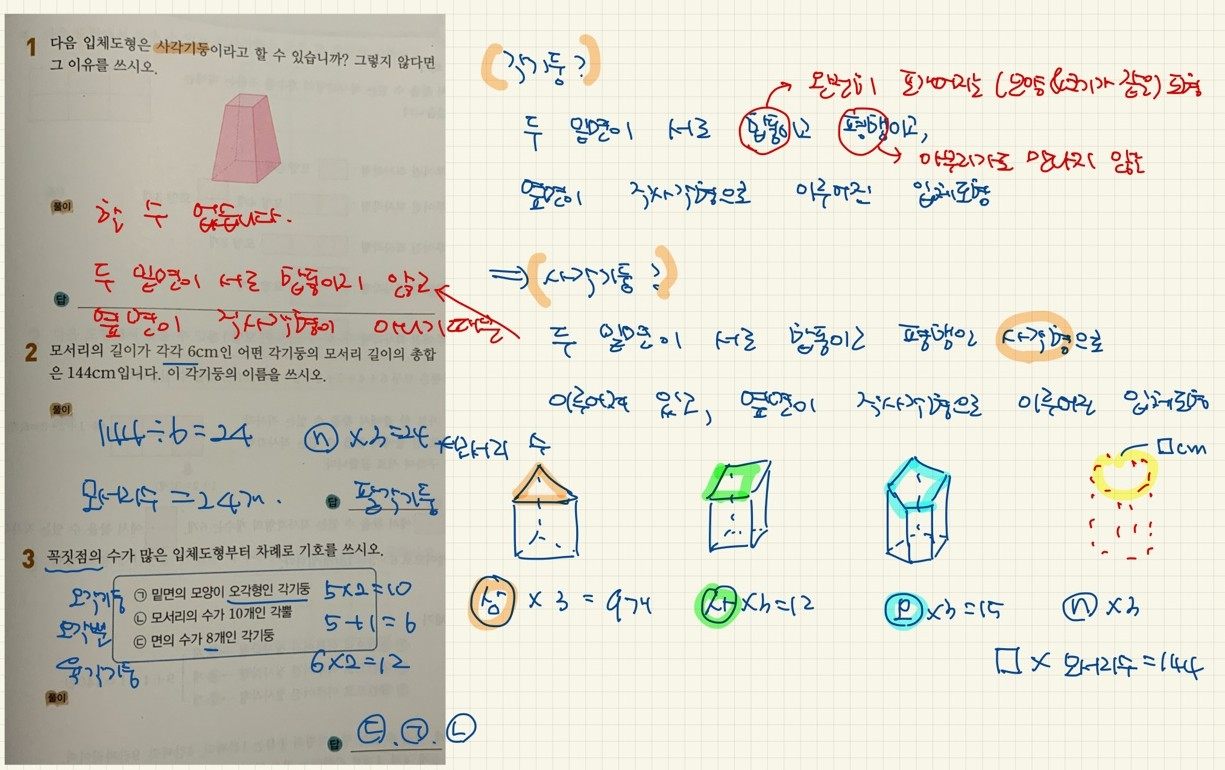 1 다음 입체도형은 사각기둥이라고 할 수 있습니까? 그렇지 않다면
그 이유를 쓰시오.
풀이
할 수 없습니다.
두 밑면이 서로 합동이지 않고
답
옆면이 직사각형이 아니기 때문
2 모서리의 길이가 각각 6cm인 어떤 각기둥의 모서리 길이의 총합
은 144cm입니다. 이 각기둥의 이름을 쓰시오.
풀이
144÷6=24
ⓝ ×3=24
모서리 수 =24개.
답 팔각기둥
3 꼭짓점의 수가 많은 입체도형부터 차례로 기호를 쓰시오.
오각기둥 ㉠ 밑면의 모양이 오각형인 각기둥 5×2=10
오각뿔 ㉡ 모서리의 수가 10개인 각뿔 5+1=6
육각기둥 ㉢ 면의 수가 8개인 각기둥 6×2=12
풀이
답 ㉢.㉠.㉡
(각기둥?)
→ 완벽히 포개어지는 (모양&크기가 같은) 도형
두 밑면이 서로 합동이고 평행이고,
→ 아무리가도 만나지 않는
옆면이 직사각형으로 이루어진 입체도형
⇒ (사각기둥?)
두 밑면이 서로 합동이고 평행인 사각형으로
이루어져 있고, 옆면이 직사각형으로 이루어진 입체도형
모서리 수
□cm
삼 × 3 = 9개
사 ×3=12
오 ×3=15
ⓝ ×3
□ × 모서리수=144